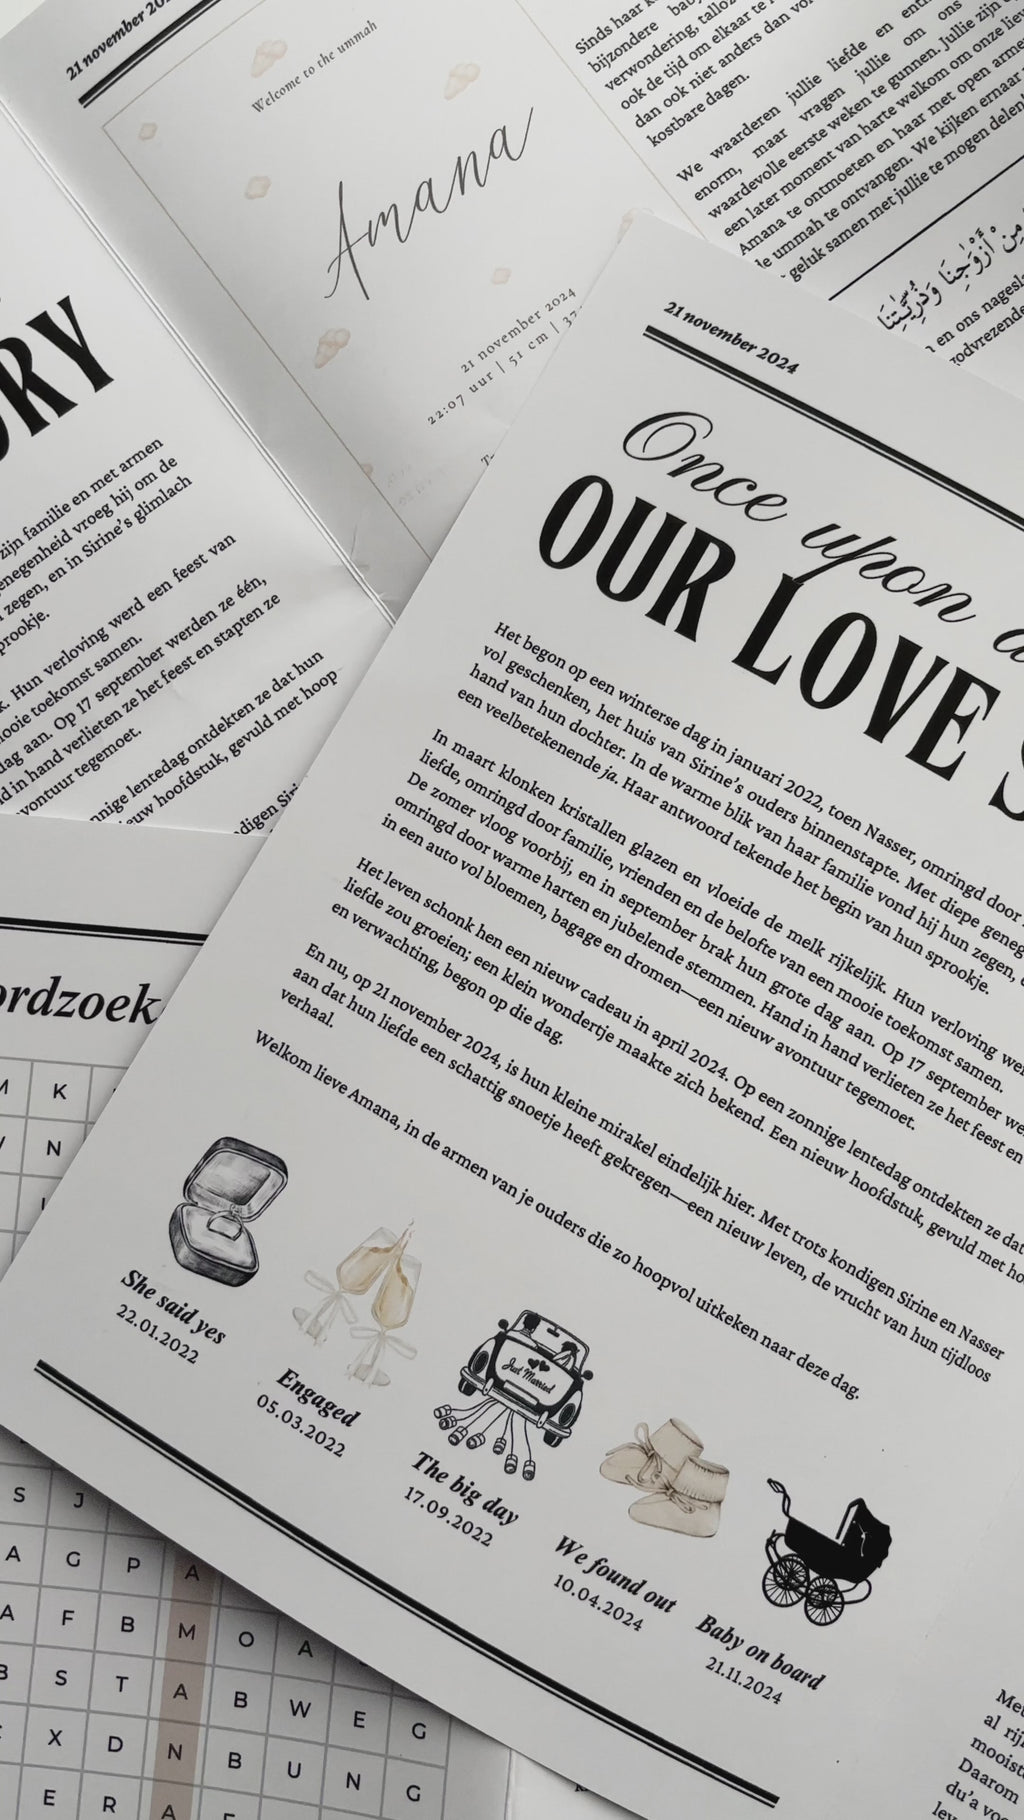 21 november 20
Welcome to the ummah
Amana
21 november 2024
22:07 uur | 51 cm | 37
Sinds haar
bijzondere
verwondering,
ook de tijd om elkaar te
dan ook niet anders dan
kostbare dagen.
We waarderen jullie liefde en
enorm, maar vragen jullie om ons
waardevolle eerste weken te gunnen. Jullie zijn
een later moment van harte welkom om onze
Amana te ontmoeten en haar met open
de ummah te ontvangen. We kijken ernaar
geluk samen met jullie te mogen delen
مِنْ أَزْوَٰجِنَا وَذُرِّيَّـٰتِنَا
en ons
ORY
zijn familie en met armen
genegenheid vroeg hij om de
zegen, en in Sirine's glimlach
sprookje.
Hun verloving werd een feest van
mooie toekomst samen.
dag aan. Op 17 september werden ze één,
d in hand verlieten ze het feest en stapten ze
vontuur tegemoet.
nnige lentedag ontdekten ze dat hun
euw hoofdstuk, gevuld met hoop
21 november 2024
Once upon a
OUR LOVE S
Het begon op een winterse dag in januari 2022, toen Nasser, omringd door
vol geschenken, het huis van Sirine's ouders binnenstapte. Met diepe geneg
hand van hun dochter. In de warme blik van haar familie vond hij hun zegen,
een veelbetekenende ja. Haar antwoord tekende het begin van hun sprookje.
In maart klonken kristallen glazen en vloeide de melk rijkelijk. Hun verloving wer
liefde, omringd door familie, vrienden en de belofte van een mooie toekomst samen.
De zomer vloog voorbij, en in september brak hun grote dag aan. Op 17 september we
omringd door warme harten en jubelende stemmen. Hand in hand verlieten ze het feest en
in een auto vol bloemen, bagage en dromen—een nieuw avontuur tegemoet.
Het leven schonk hen een nieuw cadeau in april 2024. Op een zonnige lentedag ontdekten ze dat
liefde zou groeien; een klein wondertje maakte zich bekend. Een nieuw hoofdstuk, gevuld met ho
en verwachting, begon op die dag.
En nu, op 21 november 2024, is hun kleine mirakel eindelijk hier. Met trots kondigen Sirine en Nasser
aan dat hun liefde een schattig snoetje heeft gekregen—een nieuw leven, de vrucht van hun tijdloos
verhaal.
Welkom lieve Amana, in de armen van je ouders die zo hoopvol uitkeken naar deze dag.
Just Married
She said yes
22.01.2022
Engaged
05.03.2022
The big day
17.09.2022
We found out
10.04.2024
Baby on board
21.11.2024
ordzoek
M K
N
S J
A G P A
A F B M O A
B S T A B W E G
X D N B U N G
E R A
Met
al rij
mooist
Daarom
du'a voo
lev